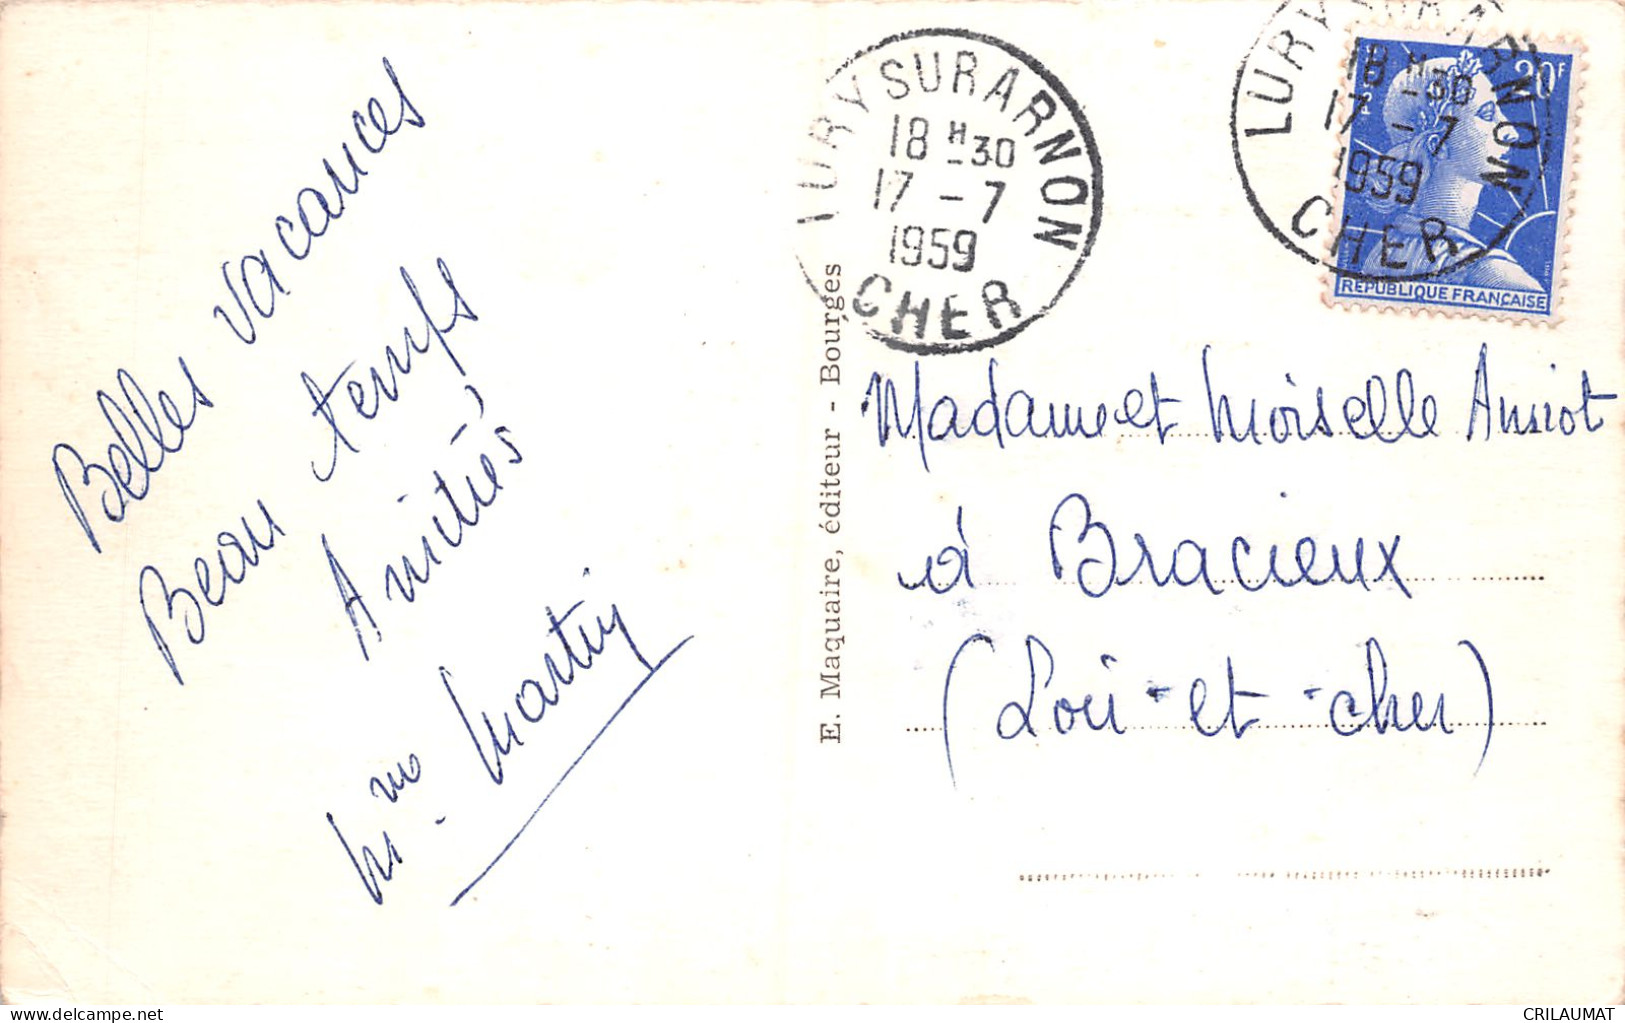 Belles vacances
Beau temps
Amitiés
Mme. Martin
E. Maquaire, éditeur - Bourges
LURY SUR ARNON
18 H 30
17 - 7
1959
CHER
LURY SUR ARNON
18 H 30
17 - 7
1959
CHER
20F
REPUBLIQUE FRANÇAISE
Madame et Moiselle
à Bracieux
(Loir-et-cher)
CRILAUMAT